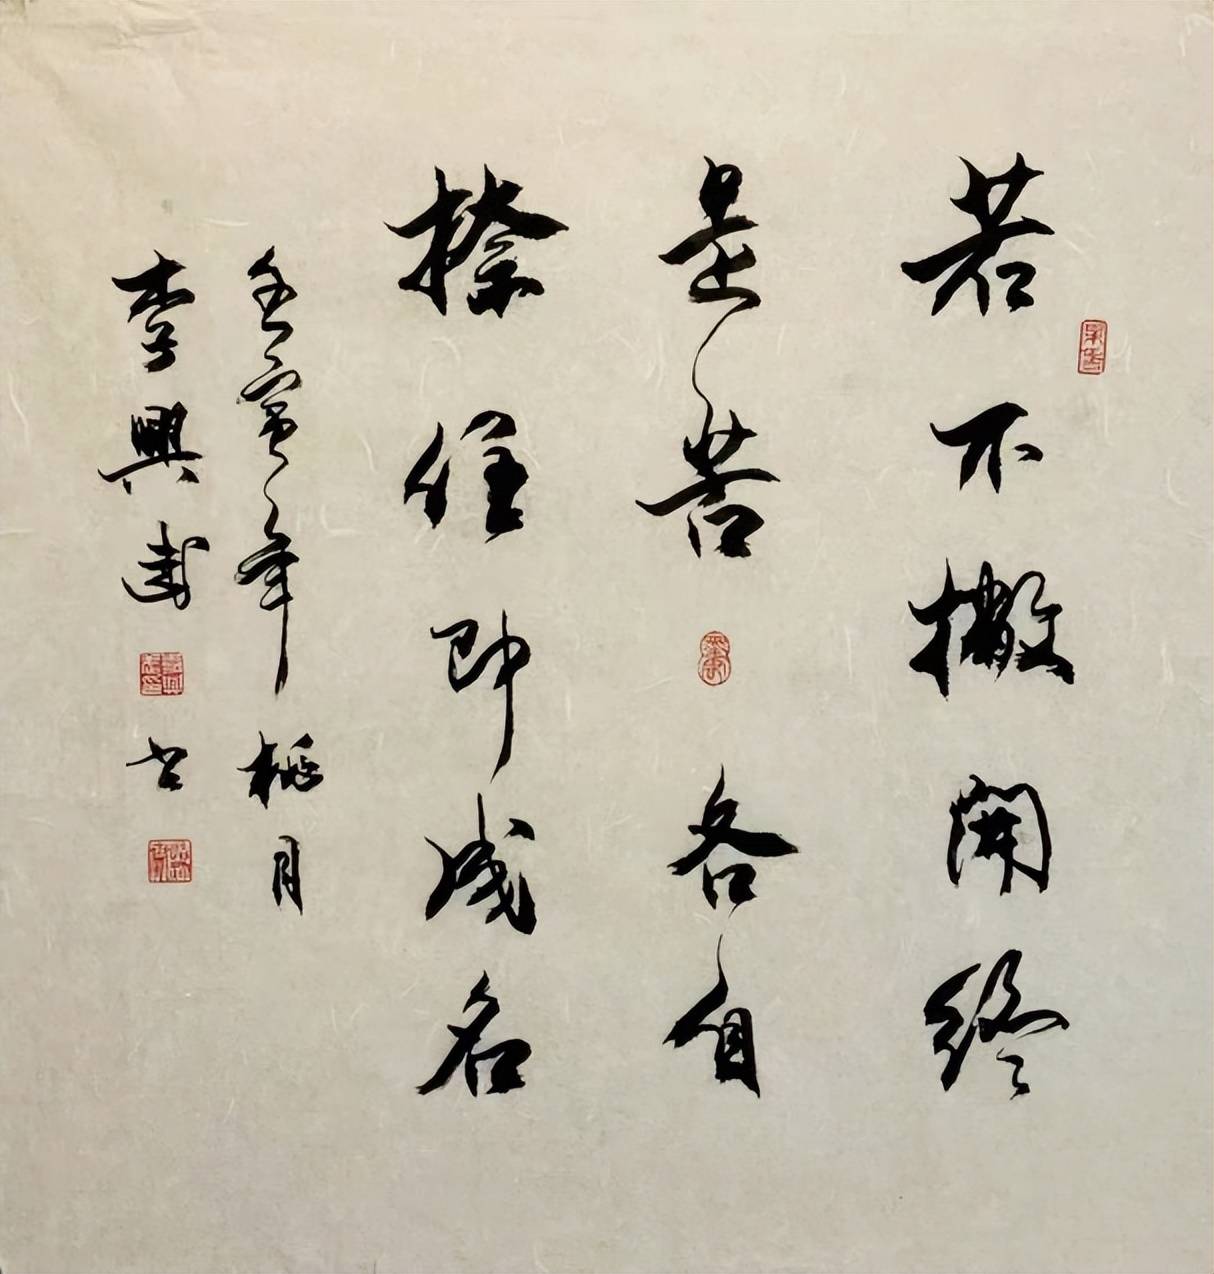 若不撇開終
是苦各自
捺住即成名
壬寅年桃月
李興武书